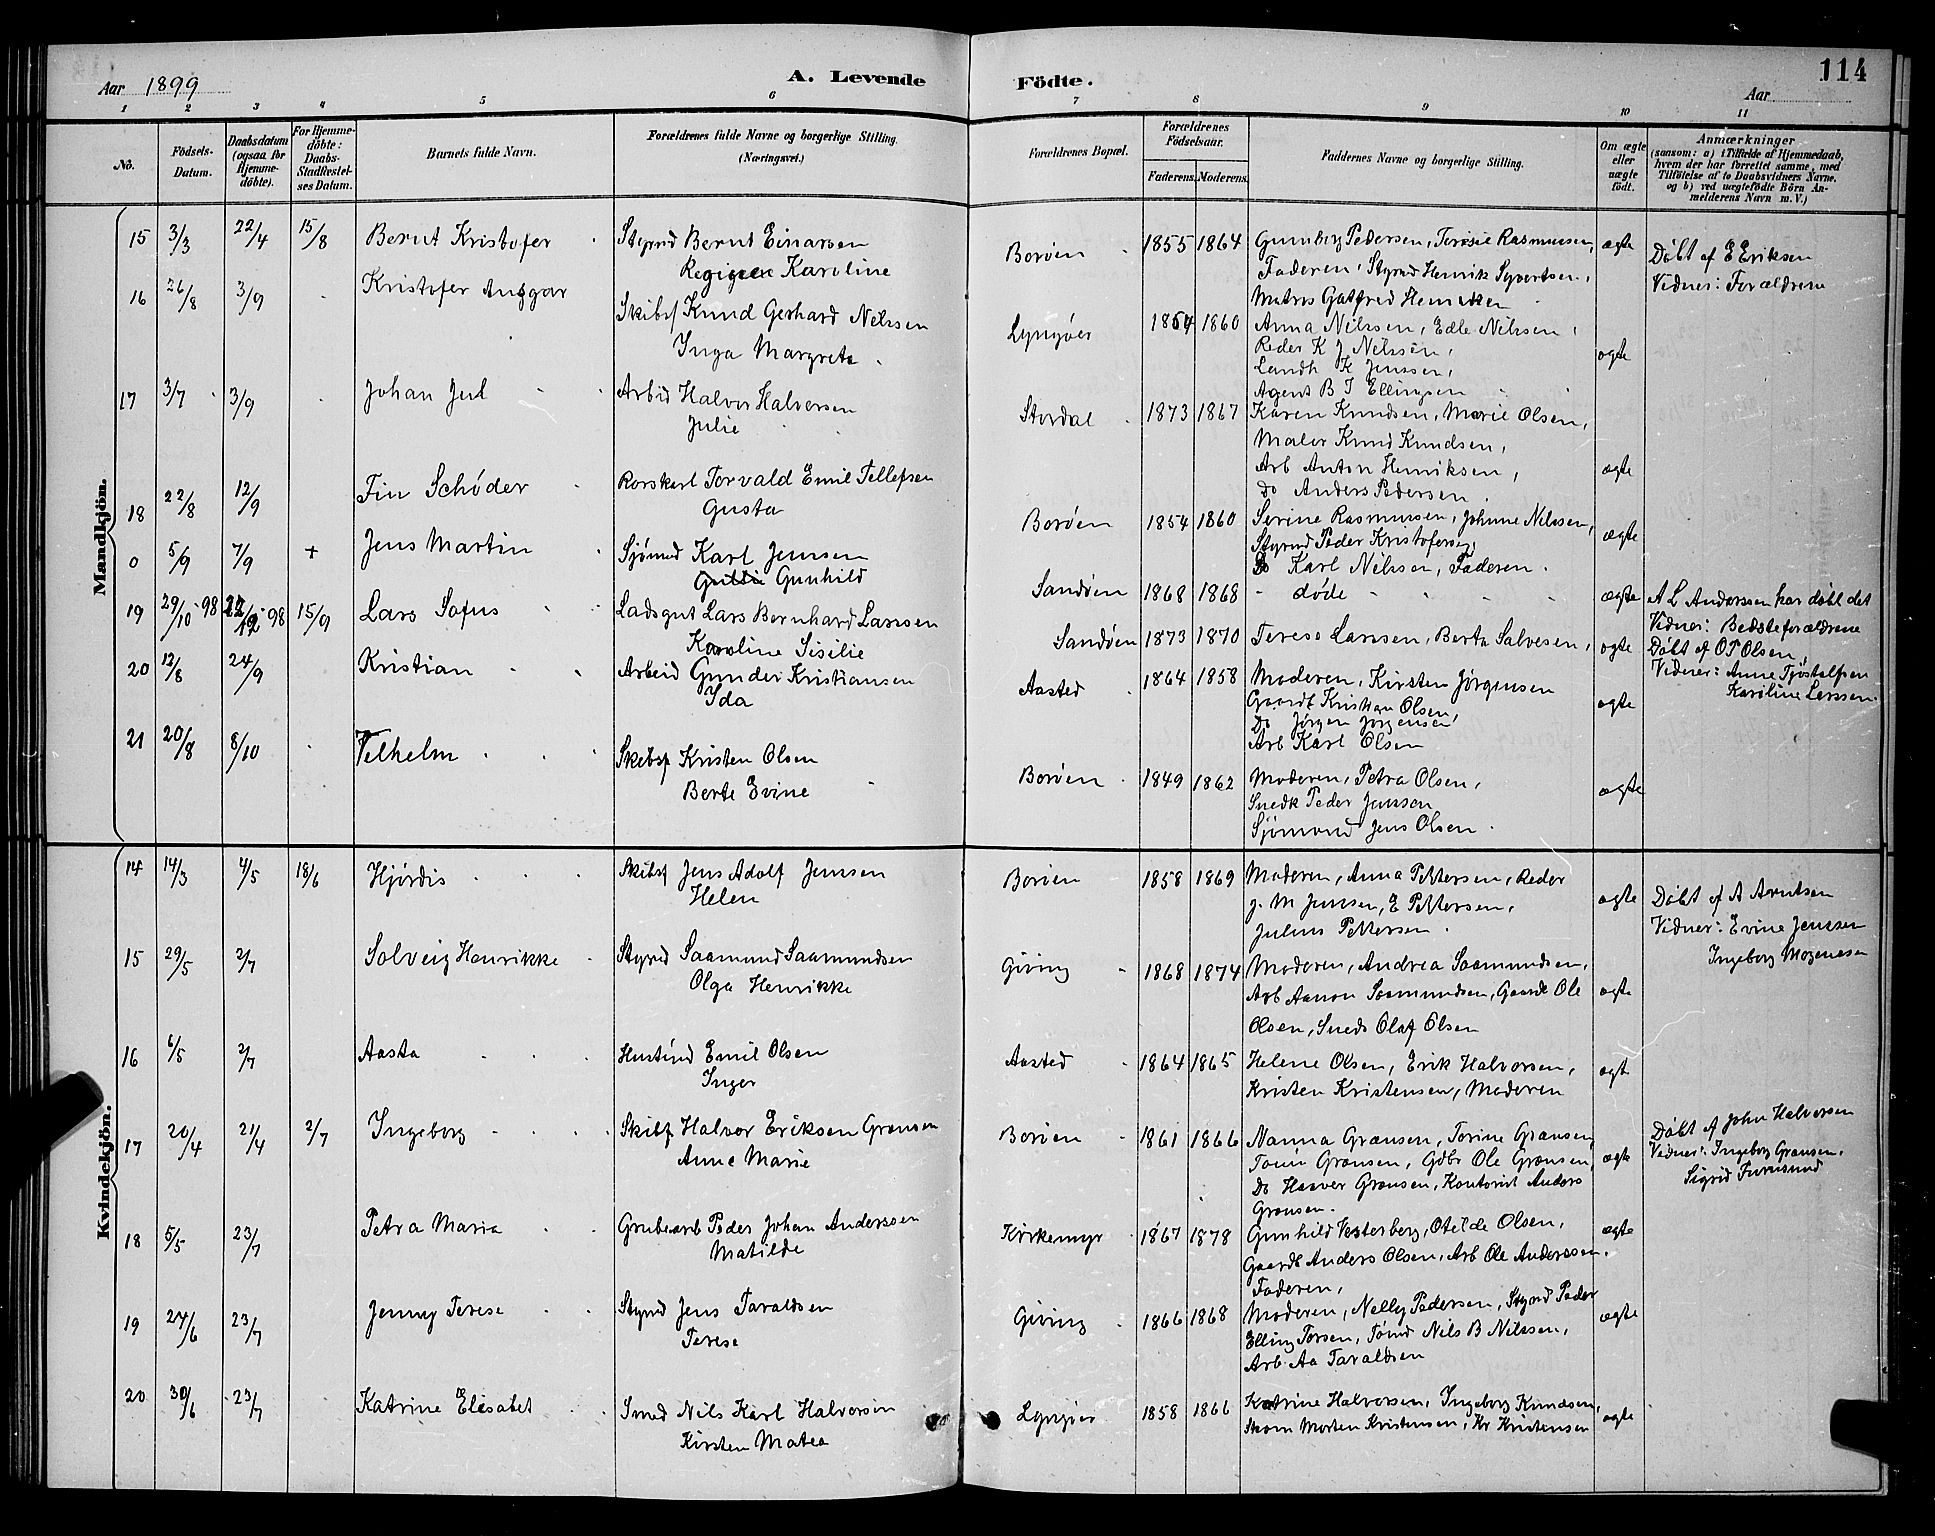 Aar 1899
A. Levende Födte.
114
Aar
1 2 3 4 5 6 7 8 9 10 11
No.
Födsels-Datum.
Daabsdatum (ogsaa for Hjemmedöbte).
For Hjemmedöbte: Daabs-Stadfestelses Datum.
Barnets fulde Navn.
Forældrenes fulde Navne og borgerlige Stilling. (Næringsvei.)
Forældrenes Bopæl.
Forældrenes Födselsaar.
Faderens. Moderens.
Faddernes Navne og borgerlige Stilling.
Om ægte eller uægte födt.
Anmærkninger
(saasom: a) i Tilfælde af Hjemmedaab, hvem der har forrettet samme, med Tilföielse af to Daabsvidners Navne. og b) ved uægtefödte Börn Anmelderens Navn m. V.)
Mandkjön.
15 3/3 22/4 15/8 Bernt Kristofer
Styrmd Bernt Einarsen
Karoline
Borøen 1855 1864
Gunborg Pedersen, Teresie Rasmussen,
Faderen, Styrmd Henrik Syvertsen,
Matros Gotfred Henriksen
ægte
Døbt af E Eriksen
Vidner: Forældrene
16 26/8 3/9 Kristofer Ansgar
Skibsf Knud Gerhard Nilssen
Inga Margrete
Lyngøer 1854 1860
Anna Nilssen, Edle Nilssen,
Reder K J Nilssen,
Landh K Jenssen,
Agent B T Ellingsen
ægte
17 3/7 3/9 Johan Jul
Arbid Halvor Halvorsen
Julie
Stordal 1873 1867
Karen Knudsen, Marie Olsen,
Maler Knud Knudsen,
Arb Anton Henriksen,
Do Anders Pedersen.
ægte
18 22/8 12/9 Fin Schøder
Rorskarl Torvald Emil Tellefsen
Gusta
Borøen 1854 1860
Serine Rasmussen, Johnne Nilssen,
Styrmd Peder Kristofersen,
Do Karl Nilssen, Faderen.
ægte
0 5/9 7/9 + Jens Martin
Sjømd Karl Jenssen
Gunhild
Sandøen 1868 1868
- døde -
ægte
A L Anderssen har døbt det
Vidner: Bedsteforældrene
19 29/10-98 /12-98 15/9 Lars Sofus
Ladsgut Lars Bernhard Larssen
Karoline Sisilie
Sandøen 1873 1870
Terese Larssen, Berta Salvesen,
ægte
Døbt af O T Olsen,
Vidner: Anne Tjøstolfsen
Karoline Larssen
20 12/8 24/9 Kristian
Arbeid Gunder Kristiansen
Ida
Aasted 1864 1858
Moderen, Kirsten Jørgensen
Gaardt Kristian Olsen,
Do Jørgen Jørgensen,
Arb Karl Olsen
ægte
21 20/8 8/10 Vilhelm
Skibsf Kristen Olsen
Berte Evine
Borøen 1849 1862
Moderen, Petra Olsen,
Snedk Peder Jenssen
Sjømand Jens Olsen.
ægte
Kvindekjön.
14 14/3 4/5 18/6 Hjørdis
Skibsf Jens Adolf Jenssen
Helen
Borøen 1858 1869
Moderen, Anna Pettersen, Reder
J. M Jenssen, E Pettersen,
Julius Pettersen.
ægte
Døbt af A Arntsen
Vidner: Evine Jenssen
Ingeborg Mogensen
15 29/5 2/7 Solveig Henrikke
Styrmd Saamund Saamundsen
Olga Henrikke
Giving 1868 1874
Moderen, Andrea Saamundsen,
Arb Aanon Saamundsen, Gaardt Ole
Olsen, Sneds Olaf Olsen
ægte
16 6/5 2/7 Aasta
Emil Olsen
Inger
Aasted 1864 1865
Helene Olsen, Erik Halvorsen,
Kristen Kristensen, Moderen
ægt
17 20/4 21/4 2/7 Ingeborg
Skibsf Halvor Eriksen Grønsen
Anne Marie
Borøen 1861 1866
Nanna Grønsen, Torine Grønsen,
Grønsen, Gdbr Ole Grønsen,
Do Haaver Grønsen, Kontorist Anders
Grønsen.
ægte
Døbt af John Halvorsen
Vidner: Ingeborg Grønsen,
Sigrid Furusund
18 5/5 23/7 Petra Maria
Grubearb Peder Johan Anderssen
Matilde
Kirkemyr 1867 1878
Gunhild Vesterberg, Otilde Olsen,
Gaardt Anders Olsen, Arb Ole Anderssen.
Faderen,
ægte
19 24/6 23/7 Jenny Terese
Styrmd Jens Taraldsen
Terese
Giving 1866 1868
Moderen, Nelly Pedersen, Styrmd Peder
Elling Torsen, Tømd Nils B Nilssen,
Arb Aa Taraldsen
ægte
20 30/6 23/7 Katrine Elisabet
Smed Nils Karl Halvorsen
Kirsten Matea
Lyngøer 1858 1866
Katrine Halvorsen, Ingeborg Knudsen,
Skom Morten Kristensen, Kr Kristensen
ægte